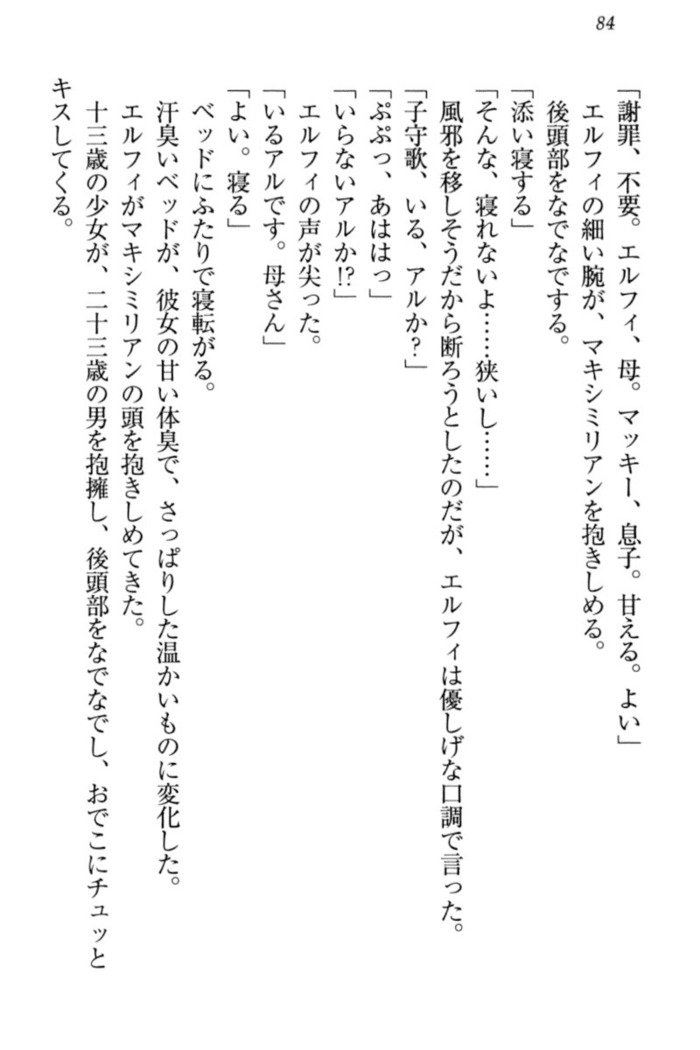 84
「謝罪、不要。エルフィ、母。マッキー、息子。甘える。よい」
エルフィの細い腕が、マキシミリアンを抱きしめる。
後頭部をなでなでする。
「添い寝する」
「そんな、寝れないよ……狭いし……」
風邪を移しそうだから断ろうとしたのだが、エルフィは優しげな口調で言った。
「子守歌、いる、アルか?」
「ぷぷっ、あははっ」
「いらないアルか!?」
エルフィの声が尖った。
「いるアルです。母さん」
「よい。寝る」
ベッドにふたりで寝転がる。
汗臭いベッドが、彼女の甘い体臭で、さっぱりした温かいものに変化した。
エルフィがマキシミリアンの頭を抱きしめてきた。
十三歳の少女が、二十三歳の男を抱擁し、後頭部をなでなでし、おでこにチュッと
キスしてくる。